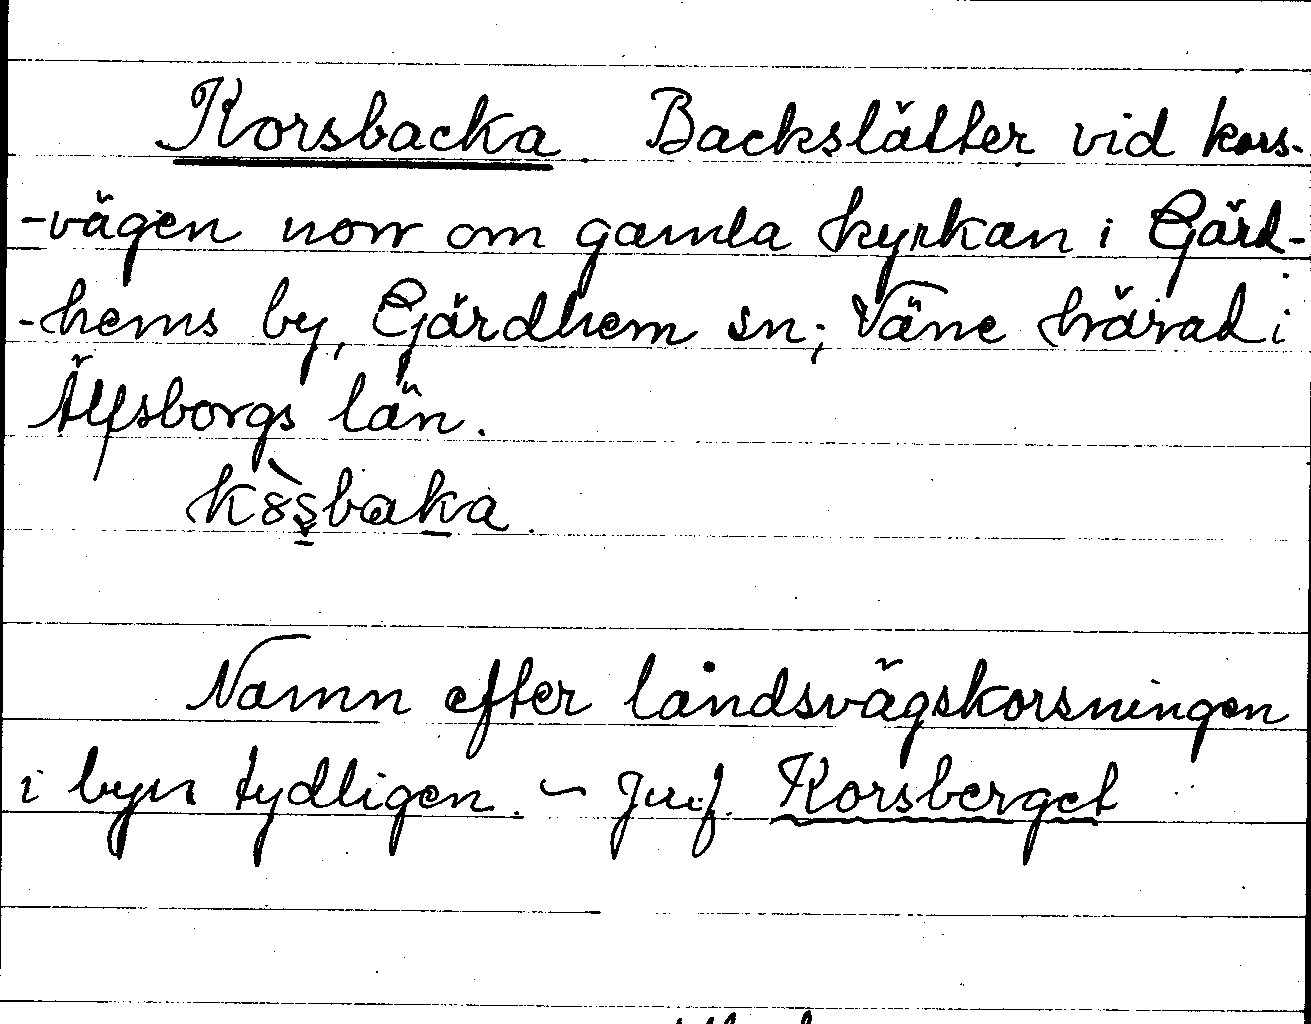 Korsbacka. Backslätter vid kors-
-vägen norr om gamla kyrkan i Gärd-
-hems by, Gärdhem sn; Väne härad i
Älfsborgs län.
Namn efter landsvägskorsningen
i byn tydligen. – Jmf. Korsberget